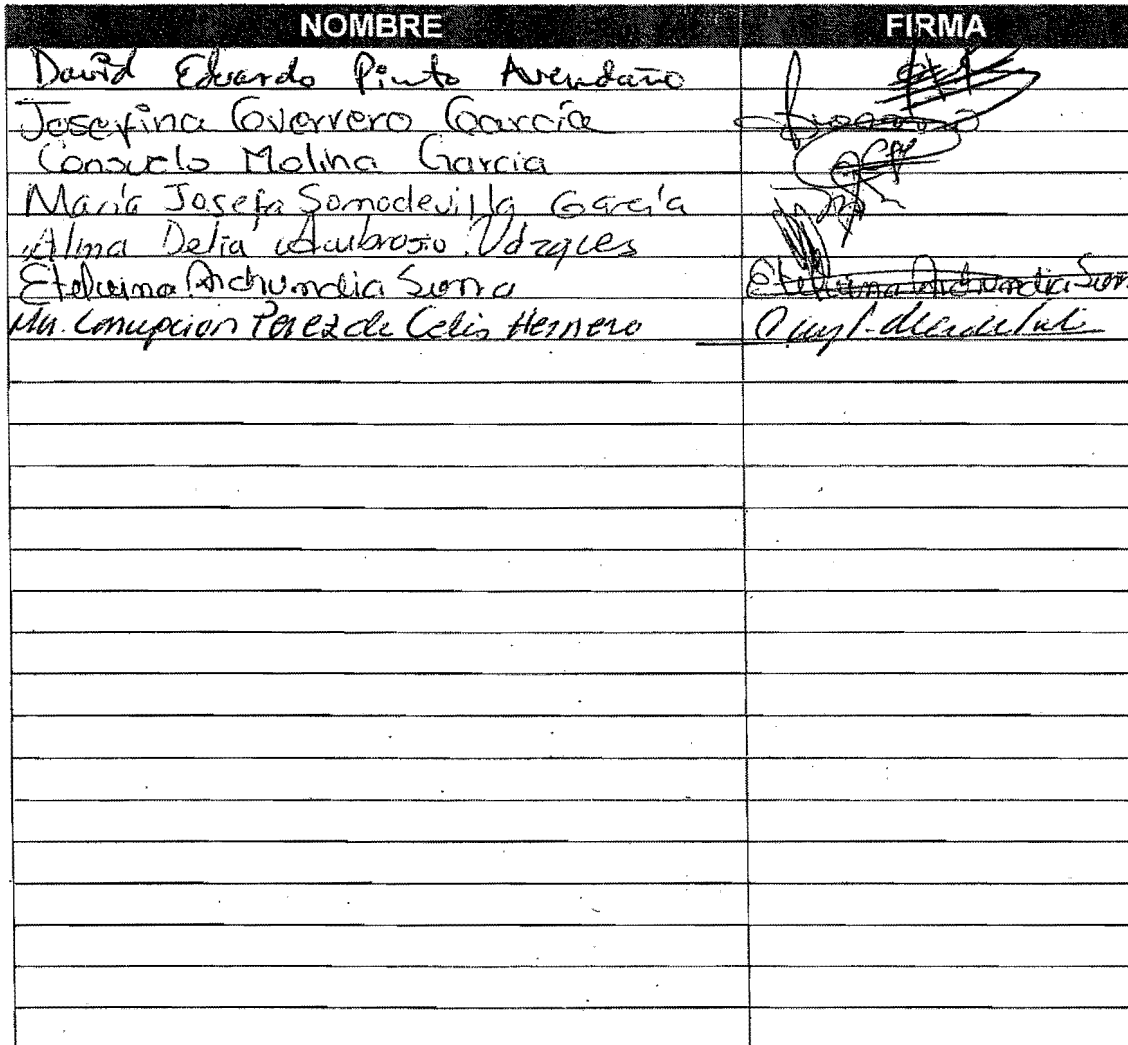 NOMBRE FIRMA
David Eduardo Pinto Avendaño
Josefina Guerrero García
Consuelo Molina García
María Josefa Somodevilla García
Alma Delia Ambrosio Vázques
Etelvina Archundia Sierra Etelvina Archundia Sierr
Ma. Concepcion Perez de Celis Herrero